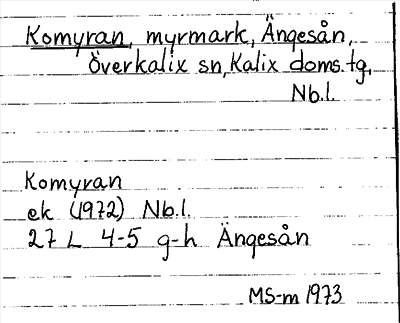 Komyran, myrmark, Ängesån,
Överkalix sn, Kalix doms.tg,
Nb.l.
Komyran
ek (1972) Nb.l.
27 L 4-5 g-h Ängesån
MS-m 1973